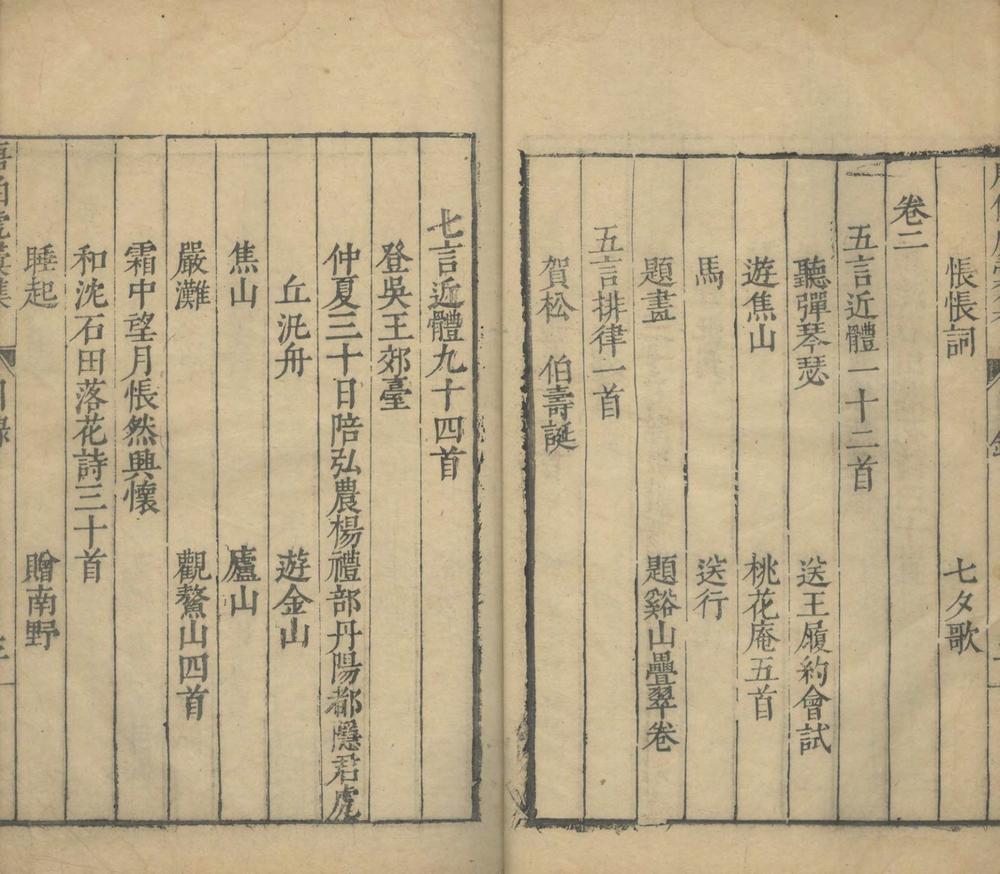 悵悵詞 七夕歌
卷二
五言近體一十二首
聽彈琴瑟 送王履約會試
遊焦山 桃花庵五首
馬 送行
題畫 題谿山疊翠卷
五言排律一首
賀松 伯壽誕
七言近體九十四首
登吳王郊臺
仲夏三十日陪弘農楊禮部丹陽都隱君虎
丘汎舟 遊金山
焦山 廬山
嚴灘 觀鰲山四首
霜中望月悵然興懷
和沈石田落花詩三十首
睡起 贈南野